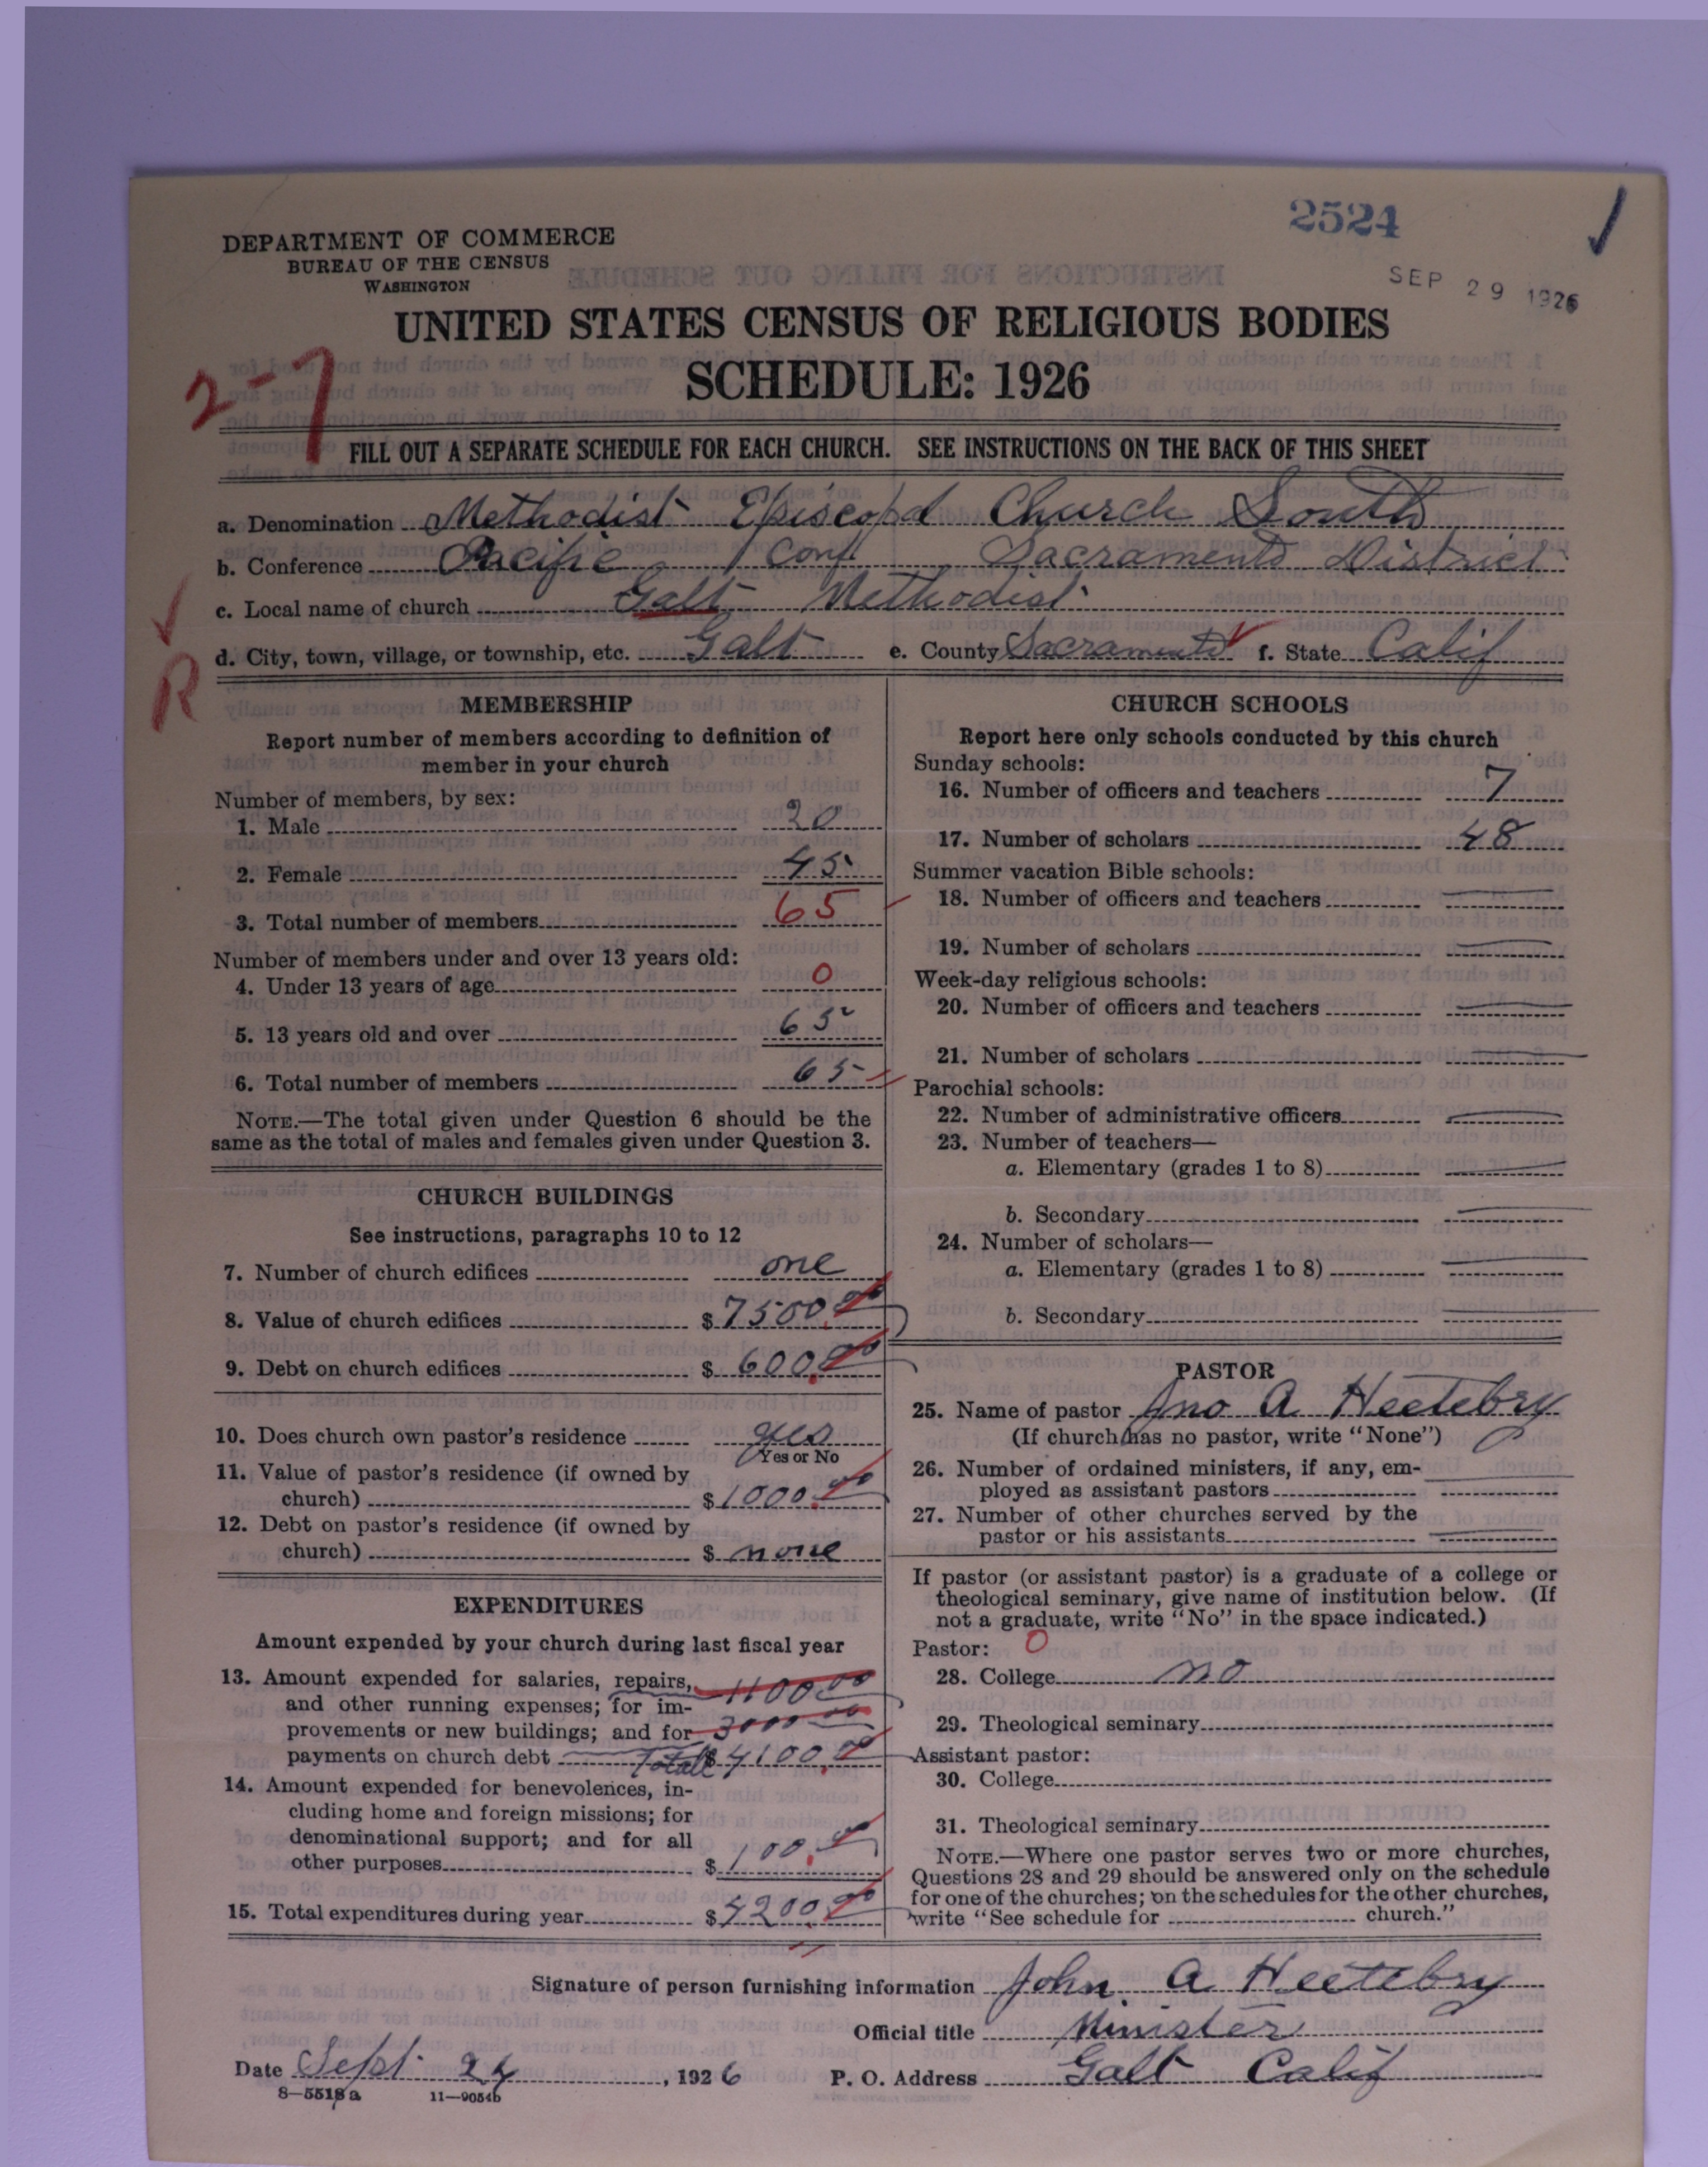 2524
DEPARTMENT OF COMMERCE
BUREAU OF THE CENSUS
WASHINGTON
SEP 29 1926
UNITED STATES CENSUS OF RELIGIOUS BODIES
SCHEDULE: 1926
2-7
FILL OUT A SEPARATE SCHEDULE FOR EACH CHURCH. SEE INSTRUCTIONS ON THE BACK OF THIS SHEET
a. Denomination Methodist Episcopal Church South
b. Conference Pacific Conf Sacramento District
c. Local name of church Galt Methodist
d. City, town, village, or township, etc. Galt e. County Sacramento f. State Calif
R
MEMBERSHIP
Report number of members according to definition of
member in your church
Number of members, by sex:
1. Male 20
2. Female 45
3. Total number of members 65
Number of members under and over 13 years old:
4. Under 13 years of age 0
5. 13 years old and over 65
6. Total number of members 65
NOTE.—The total given under Question 6 should be the
same as the total of males and females given under Question 3.
CHURCH BUILDINGS
See instructions, paragraphs 10 to 12
7. Number of church edifices one
8. Value of church edifices $ 7500.00
9. Debt on church edifices $ 600.00
10. Does church own pastor's residence yes
Yes or No
11. Value of pastor's residence (if owned by
church) $ 1000.00
12. Debt on pastor's residence (if owned by
church) $ none
EXPENDITURES
Amount expended by your church during last fiscal year
13. Amount expended for salaries, repairs, 1100 00
and other running expenses; for im-
provements or new buildings; and for 3000 00
payments on church debt Total $ 4100.00
14. Amount expended for benevolences, in-
cluding home and foreign missions; for
denominational support; and for all
other purposes $ 100.00
15. Total expenditures during year $ 4200.00
CHURCH SCHOOLS
Report here only schools conducted by this church
Sunday schools:
16. Number of officers and teachers 7
17. Number of scholars 48
Summer vacation Bible schools:
18. Number of officers and teachers
19. Number of scholars
Week-day religious schools:
20. Number of officers and teachers
21. Number of scholars
Parochial schools:
22. Number of administrative officers
23. Number of teachers—
a. Elementary (grades 1 to 8)
b. Secondary
24. Number of scholars—
a. Elementary (grades 1 to 8)
b. Secondary
PASTOR
25. Name of pastor Jno A Heetebry
(If church has no pastor, write "None")
26. Number of ordained ministers, if any, em-
ployed as assistant pastors
27. Number of other churches served by the
pastor or his assistants
If pastor (or assistant pastor) is a graduate of a college or
theological seminary, give name of institution below. (If
not a graduate, write "No" in the space indicated.)
Pastor: 0
28. College no
29. Theological seminary
Assistant pastor:
30. College
31. Theological seminary
NOTE.—Where one pastor serves two or more churches,
Questions 28 and 29 should be answered only on the schedule
for one of the churches; on the schedules for the other churches,
write "See schedule for church."
Signature of person furnishing information John A Heetebry
Official title Minister
Date Sept 24, 1926 P. O. Address Galt Calif
8-5518 a 11-9054b